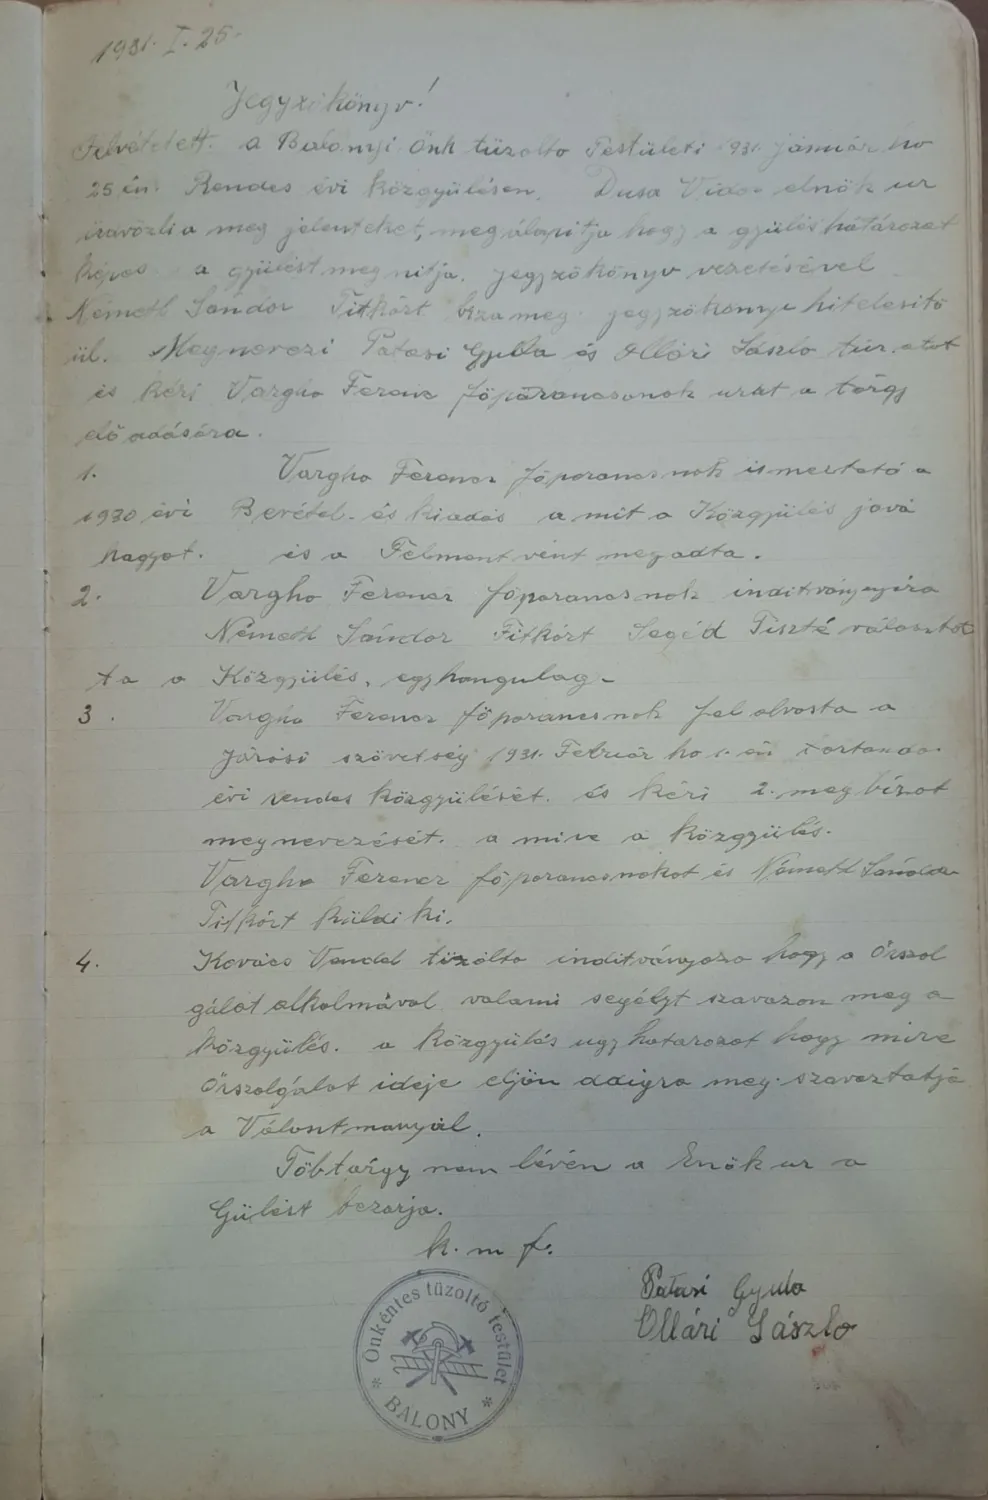 1931. I. 25.
Jegyzőkönyv!
Felvétetett. a Balonyi Önk tüzolto Testületi 931 Január ho
25 én. Rendes évi Közgyülésen. Dusa Vida elnök ur
üdvözli a meg jelenteket, meg álapitja hogy a gyülés határozat
képes a gyülést meg nitja. jegyzökönyv vezetésével
Németh Sándor Titkárt biza meg. jegyzökönyv hitelesitö
ül. Megnevezi Patasi Gyula és Ollári László tüz.
és kéri Vargha Ferenc föparancsonok urat a tárgy
elö adására.
1. Vargha Ferenc föparancsnok ismertető a
1930 évi Bevétel. és kiadás a mit a Közgyülés jová
hagyot. és a Felment vént meg adta.
2. Vargha Ferencz föparancsnok inditványyára
Németh Sándor Titkárt Segéd Tiszté választot
ta a Közgyülés. egyhangulag.
3. Vargha Ferencz föparancsnok fel olvasta a
Járási szövetség 1931. Február ho 1. én tartando.
évi rendes közgyülését. és kéri 2. meg bizot
megnevezését. a mire a közgyülés.
Vargha Ferencz föparancsnokot és Németh Sándor
Titkárt küldi ki.
4. Kovács Vendel tüzolto inditványozo hogy a Örszol
gálat alkolmával valami segélyt szavazon meg a
közgyülés. a Közgyülés ugy határozot hogy mire
Örszolgálat ideje eljön addigra meg. szavaztatja
a Választmanyál.
Töb targy nem lévén a Enök ur a
Gülést bezarja.
k. m f.
Patasi Gyula
Ollári László
Önkéntes tüzoltó testület
* BALONY *